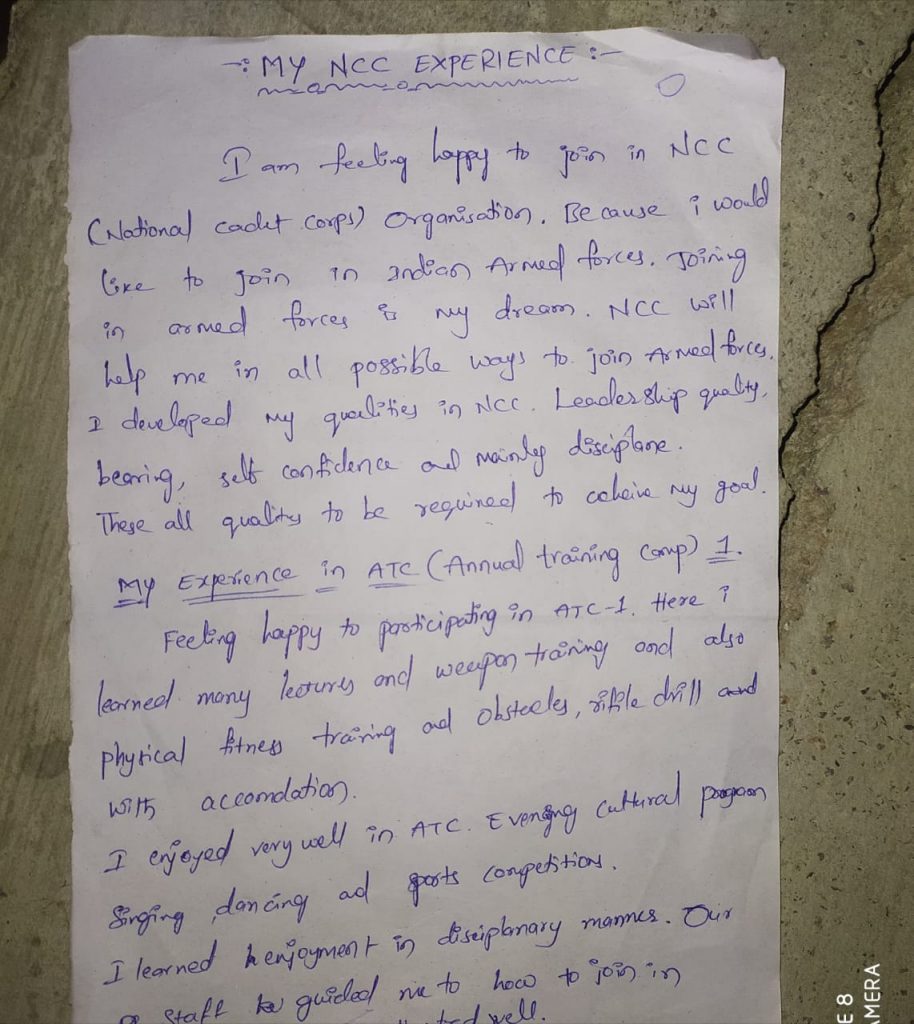 -: MY NCC EXPERIENCE :-
I am feeling happy to join in NCC
(National cadet corps) Organisation. Because i would
like to join in indian Armed forces. Joining
in armed forces is my dream. NCC will
help me in all possible ways to join Armed forces.
I developed my qualities in NCC. Leadership quality,
bearing, self confidence and mainly disciplane.
These all quality to be required to acheive my goal.
My Experience in ATC (Annual training camp) 1.
Feeling happy to participating in ATC-1. Here i
learned many lectures and weepon training and also
physical fitness training and obsteeles, rifile drill and
with accomdation.
I enjoyed very well in ATC. Evening cultural program
Singing, dancing ad sports competition.
I learned enjoyment in disciplanary manner. Our
staff guided me to how to join in
well.
E 8
AMERA